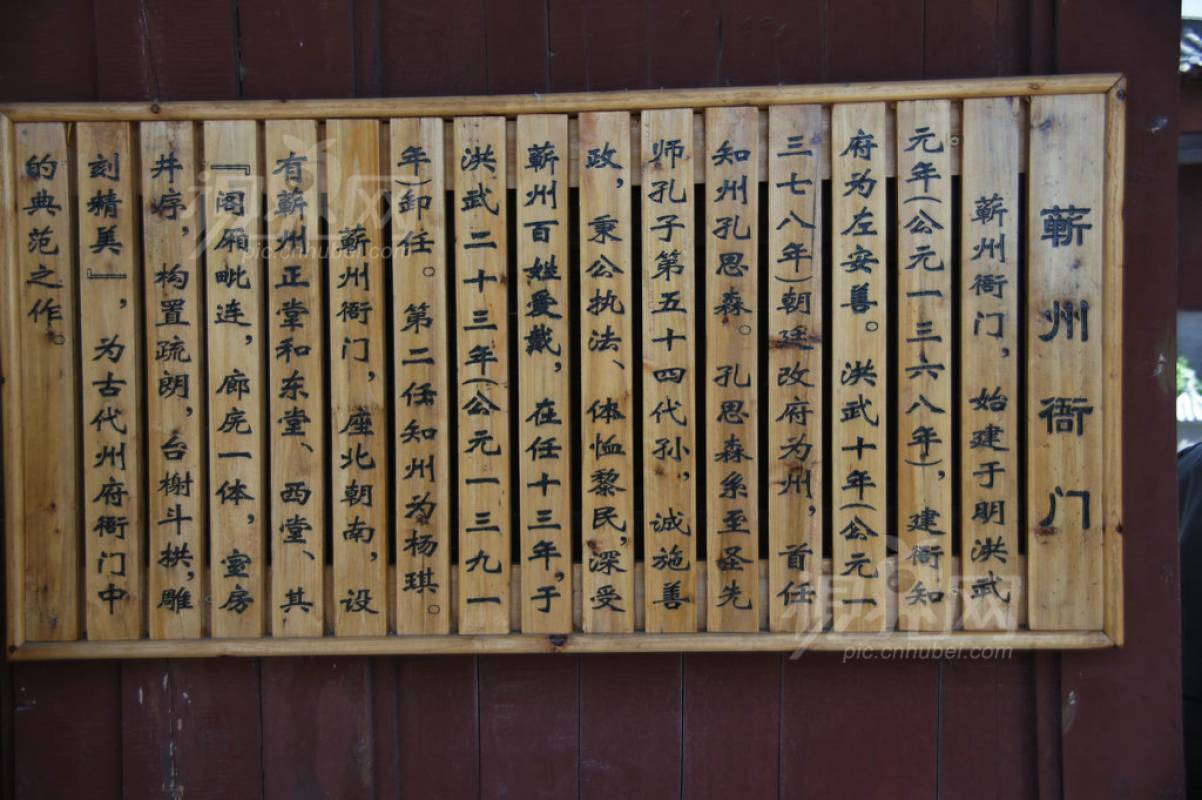 蕲州衙门
蕲州衙门，始建于明洪武
元年(公元一三六八年)，建衙知
府为左安善。洪武十年(公元一
三七八年)朝廷改府为州，首任
知州孔思森。孔思森系至圣先
师孔子第五十四代孙，诚施善
政，秉公执法、体恤黎民，深受
蕲州百姓爱戴，在任十三年，于
洪武二十三年(公元一三九一
年)卸任。第二任知州为杨琪。
蕲州衙门，座北朝南，设
有蕲州正堂和东堂、西堂、其
『阁厢毗连，廊庑一体，室房
井序，构置疏朗，台榭斗拱，雕
刻精美』，为古代州府衙门中
的典范之作。
pic.cnhubei.com
pic.cnhubei.com